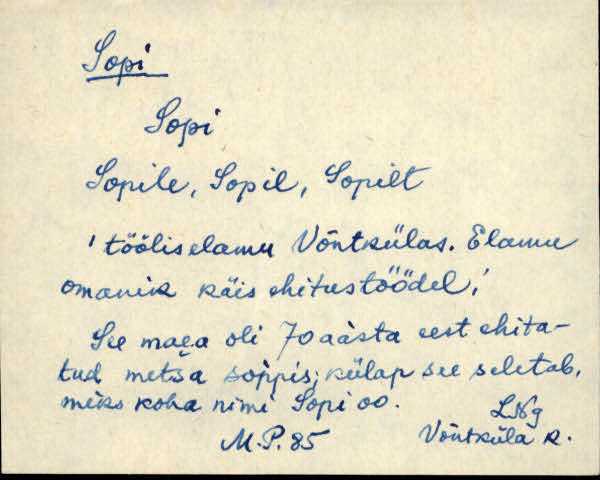 Sopi
Sopi
Sopile, Sopil, Sopilt
' tööliselamu Võntkülas. Elamu
omanik käis ehitustöödel.'
See maea oli 70 aasta eest ehita-
tud metsa soppis; külap see seletab,
miks koha nimi Sopi oo.
LNg
M.P. 85 Võntküla k.